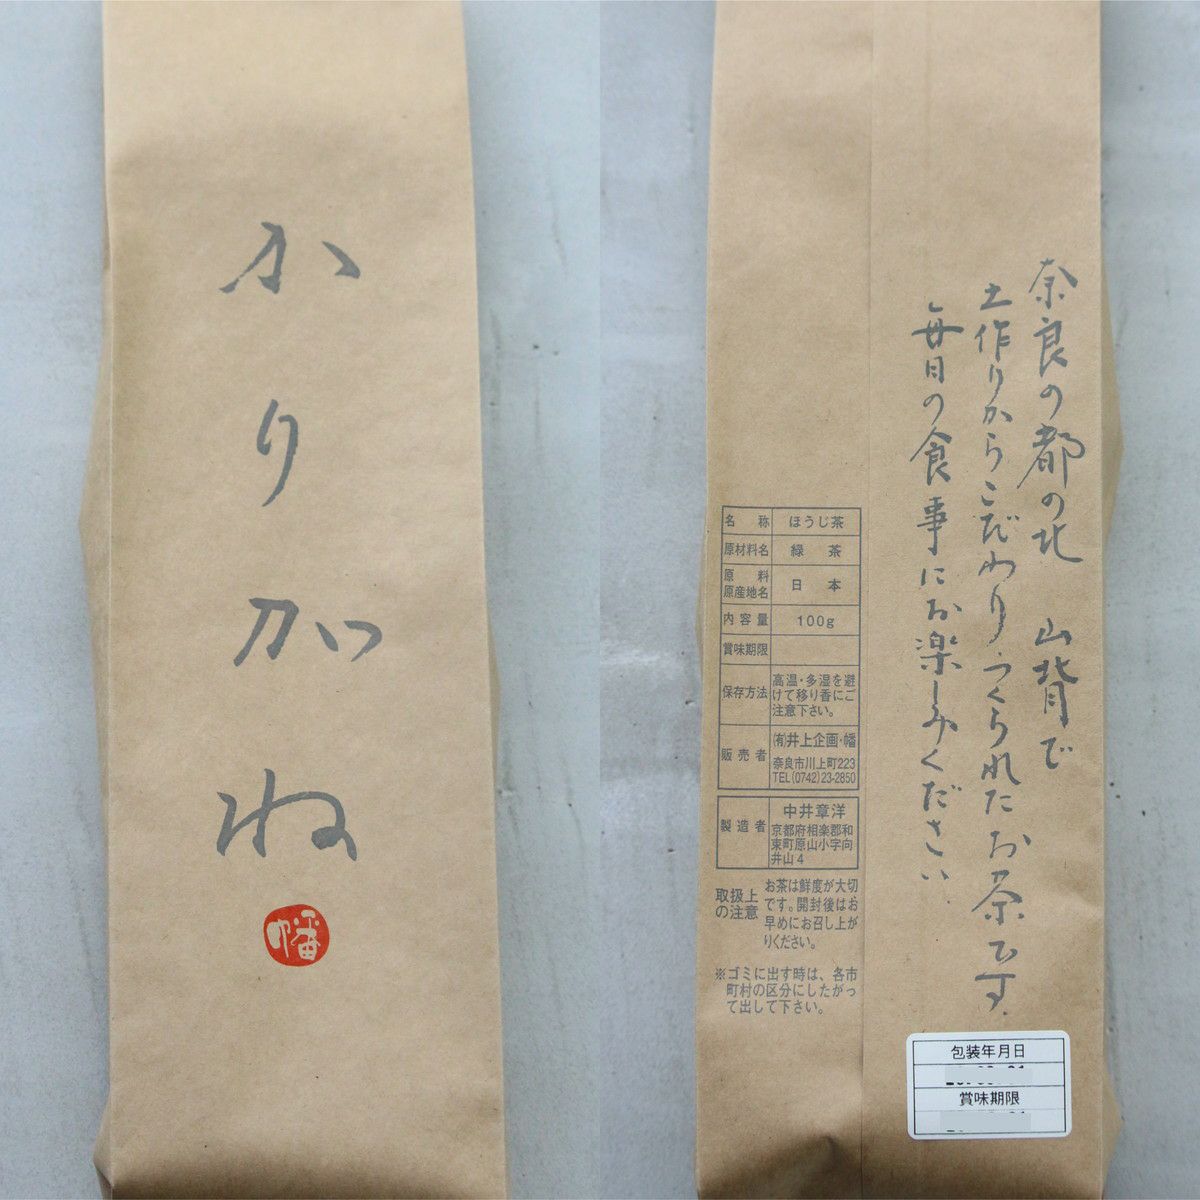 かりがね
幡
奈良の都の北 山背で
土作りからこだわりつくられたお茶です.
毎日の食事にお楽しみください.
名称 ほうじ茶
原材料名 緑茶
原料原産地名 日本
内容量 100g
賞味期限
保存方法 高温・多湿を避
けて移り香にご
注意下さい。
販売者 (有)井上企画・幡
奈良市川上町223
TEL(0742)23-2850
製造者 中井章洋
京都府相楽郡和
束町原山小字向
井山4
取扱上の注意 お茶は鮮度が大切
です。開封後はお
早めにお召し上が
りください。
※ゴミに出す時は、各市
町村の区分にしたがっ
て出して下さい。
包装年月日
賞味期限